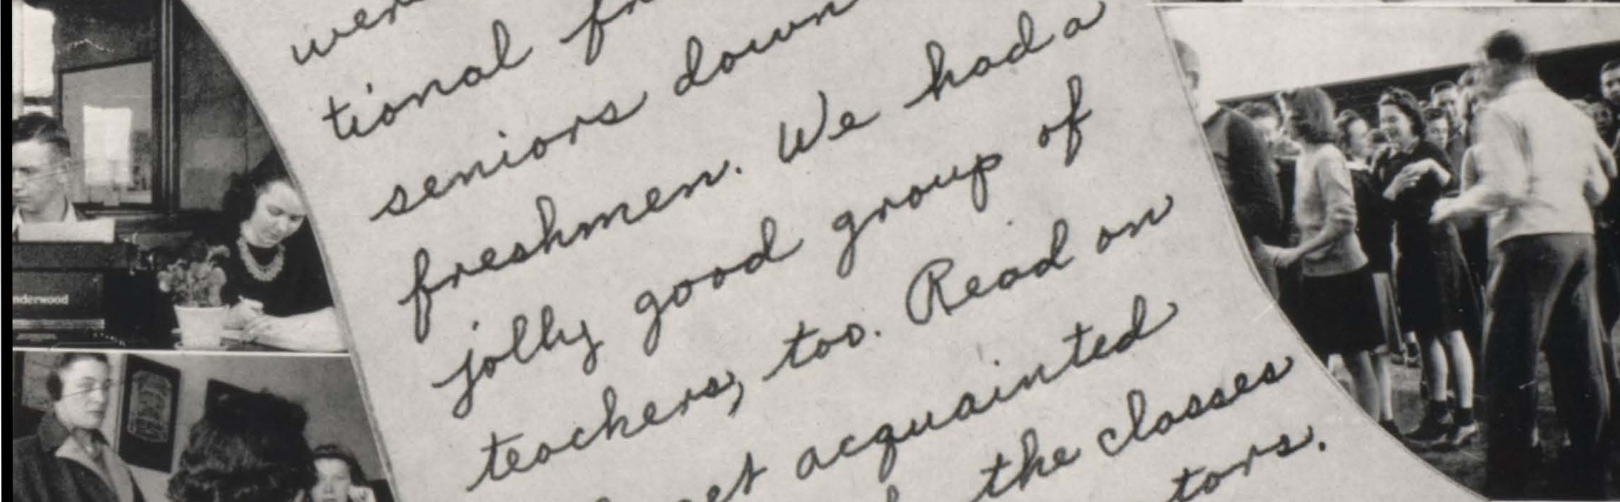 tional
seniors down
freshmen. We had a
jolly good group of
teachers, too. Read on
acquainted
the classes
nderwood